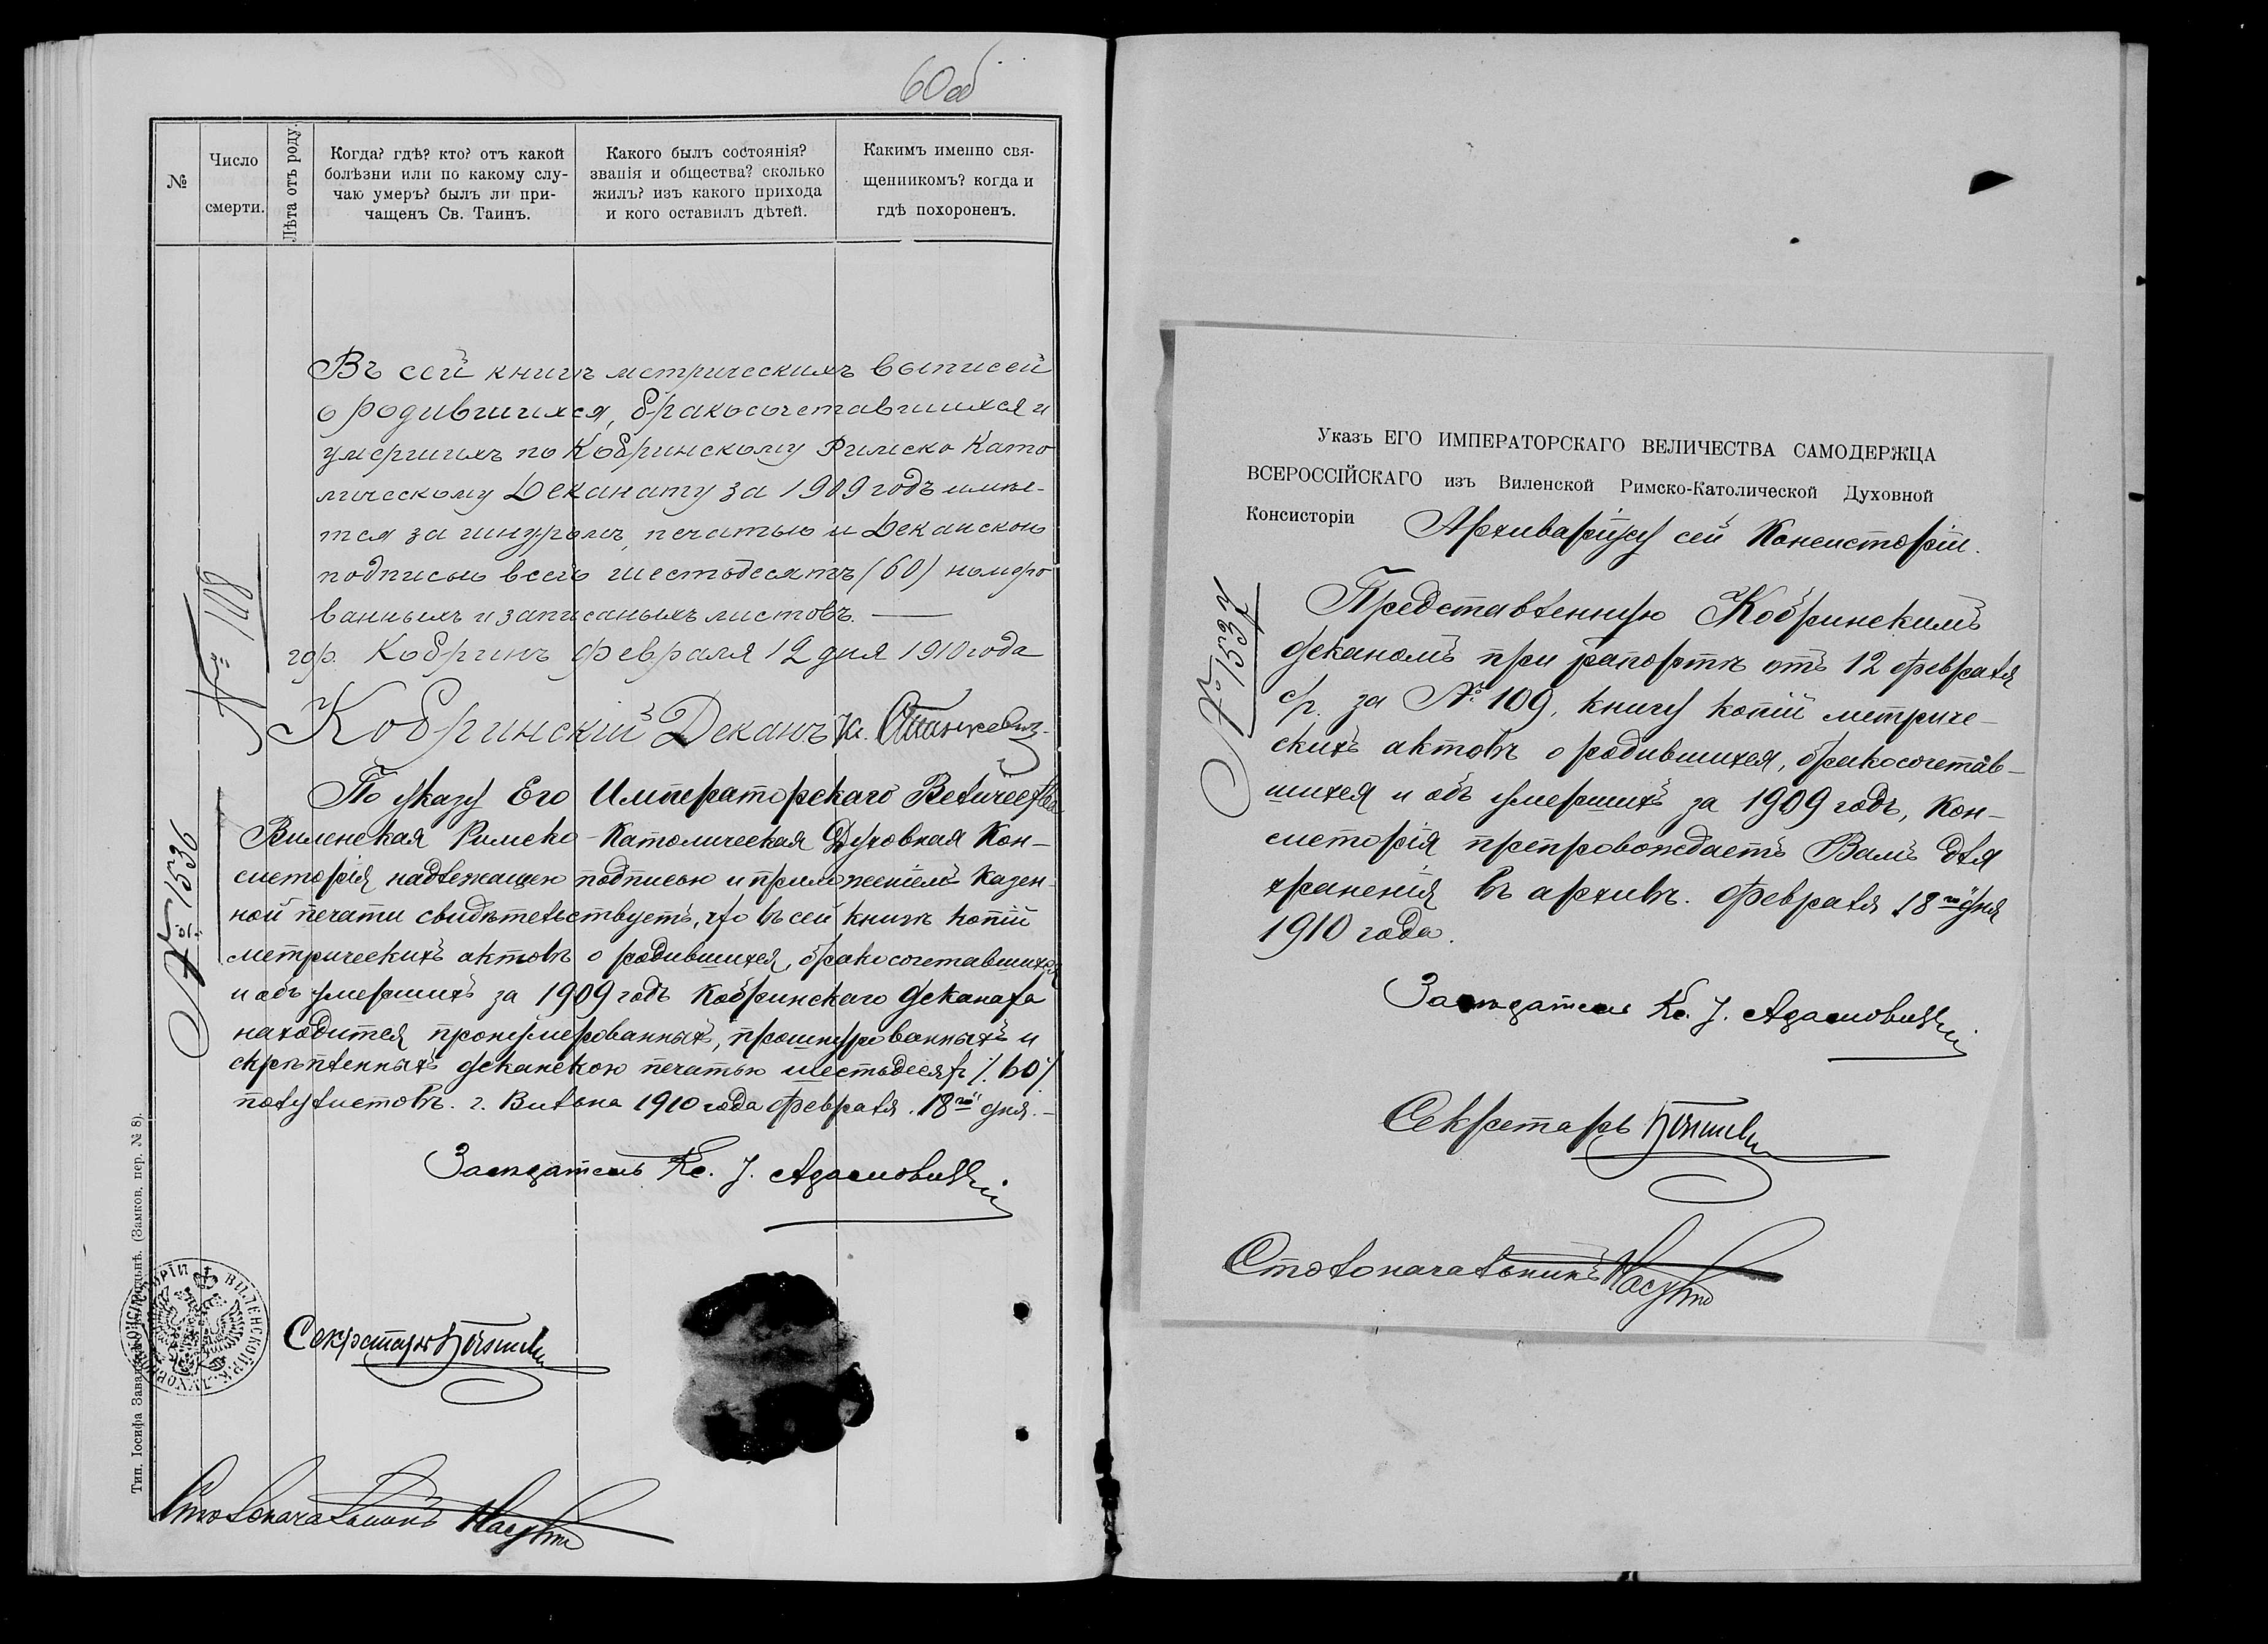 60об
№
Число
смерти.
Лѣта отъ роду.
Когда? гдѣ? кто? отъ какой
болѣзни или по какому слу-
чаю умеръ? былъ ли при-
чащенъ Св. Таинъ.
Какого былъ состоянія?
званія и общества? сколько
жилъ? изъ какого прихода
и кого оставилъ дѣтей.
Какимъ именно свя-
щенникомъ? когда и
гдѣ похороненъ.
Въ сей книгѣ метрическихъ выписей
о родившихся, бракосочетавшихся и
умершихъ по Кобринскому Римско Като
лическому Деканату за 1909 годъ имѣе-
тся за шнуромъ, печатью и Деканскою
подписью всего шестьдесятъ (60) номеро
ванныхъ и записаныхъ листовъ.
гор. Кобринъ Февраля 12 дня 1910 года
Кобринскій Деканъ Кс. Станкевичъ
По указу Его Императорскаго Величества
Виленская Римско-Католическая Духовная Кон-
систорія надлежащею подписью и приложеніемъ казен-
ной печати свидѣтельствуетъ, что въ сей книгѣ копій
метрическихъ актовъ о родившихся, бракосочетавшихся
и объ умершихъ за 1909 годъ Кобринскаго деканата
находится пронумерованныхъ, прошнурованныхъ и
скрѣпленныхъ деканскою печатью шестьдесятъ /60/
полулистовъ. г. Вильна 1910 года Февраля 18го дня.
Засѣдатель Кс. J. Адамовичъ
Секретарь
Столоначальникъ
№ 1536
Тип. Іосифа (Замков. пер. № 8).
ВИЛЕНСКОЙ Р.К. ДУХОВНОЙ КОНСИСТОРІИ
Указъ ЕГО ИМПЕРАТОРСКАГО ВЕЛИЧЕСТВА САМОДЕРЖЦА
ВСЕРОССІЙСКАГО изъ Виленской Римско-Католической Духовной
Консисторіи Архиваріусу сей Консисторіи.
№ 1537
Представленную Кобринскимъ
деканомъ при рапортѣ отъ 12 февраля
с/г. за № 109, книгу копій метриче-
скихъ актовъ о родившихся, бракосочетав-
шихся и объ умершихъ за 1909 годъ, Кон-
систорія препровождаетъ Вамъ для
храненія въ архивѣ. Февраля 18го дня
1910 года.
Засѣдатель Кс. J. Адамовичъ
Секретарь
Столоначальникъ